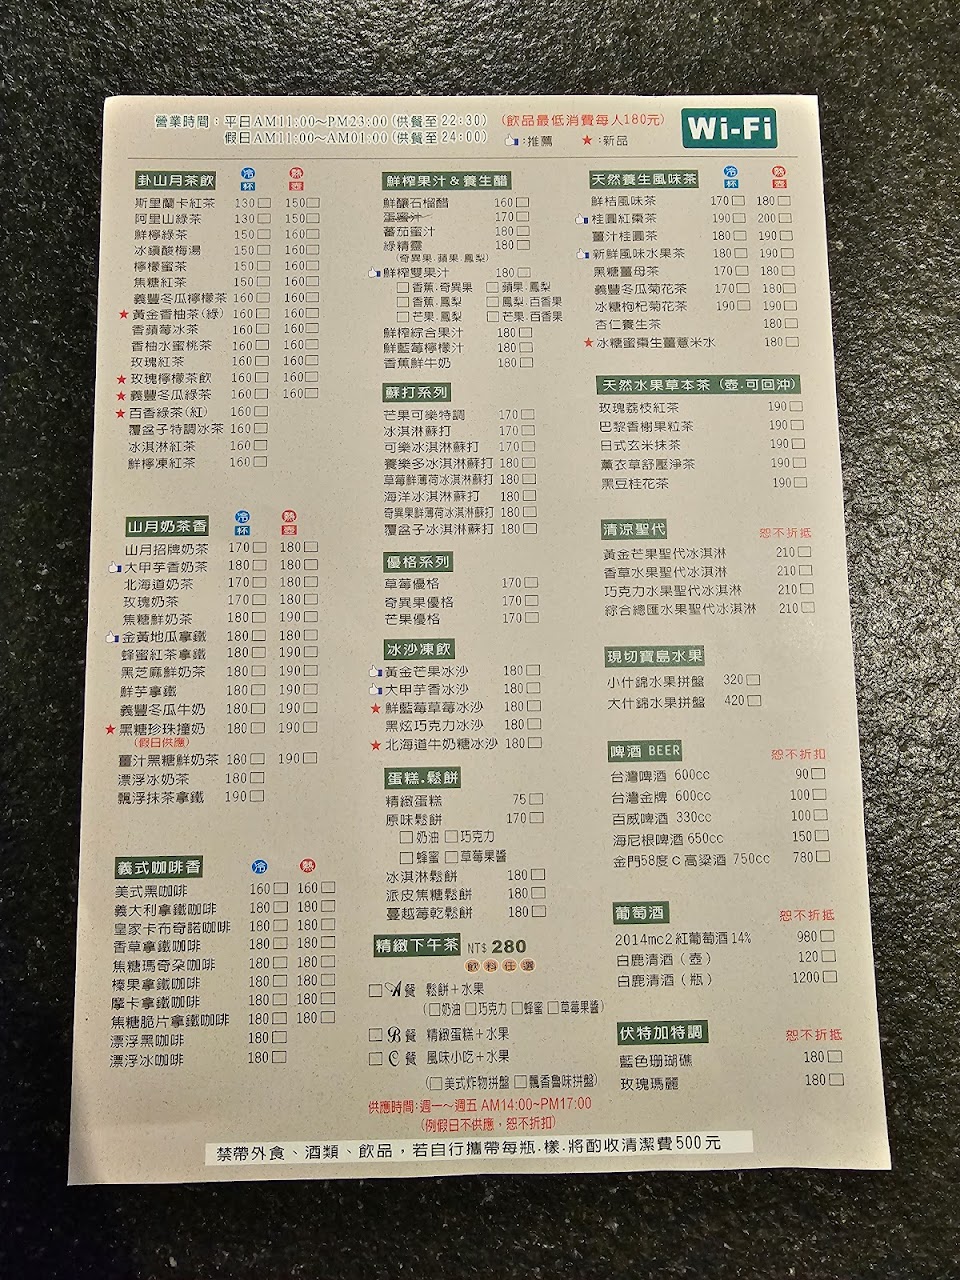 營業時間：平日AM11:00~PM23:00(供餐至22:30) (飲品最低消費每人180元)
假日AM11:00~AM01:00(供餐至24:00) :推薦 ★:新品
Wi-Fi
卦山月茶飲 冷杯 熱壺
斯里蘭卡紅茶 130□ 150□
阿里山綠茶 130□ 150□
鮮檸綠茶 150□ 160□
冰鎮酸梅湯 150□ 160□
檸檬蜜茶 150□ 160□
焦糖紅茶 150□ 160□
義豐冬瓜檸檬茶 160□ 160□
★黃金香柚茶(綠) 160□ 160□
香蘋莓冰茶 160□ 160□
香柚水蜜桃茶 160□ 160□
玫瑰紅茶 160□ 160□
★玫瑰檸檬茶飲 160□ 160□
★義豐冬瓜綠茶 160□ 160□
★百香綠茶(紅) 160□
覆盆子特調冰茶 160□
冰淇淋紅茶 160□
鮮檸凍紅茶 160□
山月奶茶香 冷杯 熱壺
山月招牌奶茶 170□ 180□
大甲芋香奶茶 180□ 180□
北海道奶茶 170□ 180□
玫瑰奶茶 170□ 180□
焦糖鮮奶茶 180□ 190□
金黃地瓜拿鐵 180□ 180□
蜂蜜紅茶拿鐵 180□ 190□
黑芝麻鮮奶茶 180□ 190□
鮮芋拿鐵 180□ 190□
義豐冬瓜牛奶 180□ 190□
★黑糖珍珠撞奶 180□ 190□
(假日供應)
薑汁黑糖鮮奶茶 180□ 190□
漂浮冰奶茶 180□
飄浮抹茶拿鐵 190□
義式咖啡香 冷 熱
美式黑咖啡 160□ 160□
義大利拿鐵咖啡 180□ 180□
皇家卡布奇諾咖啡 180□ 180□
香草拿鐵咖啡 180□ 180□
焦糖瑪奇朵咖啡 180□ 180□
榛果拿鐵咖啡 180□ 180□
摩卡拿鐵咖啡 180□ 180□
焦糖脆片拿鐵咖啡 180□ 180□
漂浮黑咖啡 180□
漂浮冰咖啡 180□
鮮榨果汁&養生醋
鮮釀石榴醋 160□
蛋蜜汁 170□
蕃茄蜜汁 180□
綠精靈 180□
(奇異果.蘋果.鳳梨)
鮮榨雙果汁 180□
□香蕉.奇異果 □蘋果.鳳梨
□香蕉.鳳梨 □鳳梨.百香果
□芒果.鳳梨 □芒果.百香果
鮮榨綜合果汁 180□
鮮藍莓檸檬汁 180□
香蕉鮮牛奶 180□
蘇打系列
芒果可樂特調 170□
冰淇淋蘇打 170□
可樂冰淇淋蘇打 170□
養樂多冰淇淋蘇打 180□
草莓鮮薄荷冰淇淋蘇打 180□
海洋冰淇淋蘇打 180□
奇異果鮮薄荷冰淇淋蘇打 180□
覆盆子冰淇淋蘇打 180□
優格系列
草莓優格 170□
奇異果優格 170□
芒果優格 170□
冰沙凍飲
黃金芒果冰沙 180□
大甲芋香冰沙 180□
★鮮藍莓草莓冰沙 180□
黑炫巧克力冰沙 180□
★北海道牛奶糖冰沙 180□
蛋糕.鬆餅
精緻蛋糕 75□
原味鬆餅 170□
□奶油 □巧克力
□蜂蜜 □草莓果醬
冰淇淋鬆餅 180□
派皮焦糖鬆餅 180□
蔓越莓乾鬆餅 180□
精緻下午茶 NT$ 280
飲料任選
□A餐 鬆餅+水果
(□奶油 □巧克力 □蜂蜜 □草莓果醬)
□B餐 精緻蛋糕+水果
□C餐 風味小吃+水果
(□美式炸物拼盤 □飄香魯味拼盤)
供應時間:週一~週五 AM14:00~PM17:00
(例假日不供應，恕不折扣)
天然養生風味茶 冷杯 熱壺
鮮桔風味茶 170□ 180□
桂圓紅棗茶 190□ 200□
薑汁桂圓茶 180□ 190□
新鮮風味水果茶 180□ 190□
黑糖薑母茶 170□ 180□
義豐冬瓜菊花茶 170□ 180□
冰糖枸杞菊花茶 190□ 190□
杏仁養生茶 180□
★冰糖蜜棗生薑薏米水 180□
天然水果草本茶 (壺.可回沖)
玫瑰荔枝紅茶 190□
巴黎香榭果粒茶 190□
日式玄米抹茶 190□
薰衣草舒壓淨茶 190□
黑豆桂花茶 190□
清涼聖代 恕不折抵
黃金芒果聖代冰淇淋 210□
香草水果聖代冰淇淋 210□
巧克力水果聖代冰淇淋 210□
綜合總匯水果聖代冰淇淋 210□
現切寶島水果
小什錦水果拼盤 320□
大什錦水果拼盤 420□
啤酒 BEER 恕不折扣
台灣啤酒 600cc 90□
台灣金牌 600cc 100□
百威啤酒 330cc 100□
海尼根啤酒 650cc 150□
金門58度C高粱酒 750cc 780□
葡萄酒 恕不折抵
2014mc2紅葡萄酒14% 980□
白鹿清酒（壺） 120□
白鹿清酒（瓶） 1200□
伏特加特調 恕不折抵
藍色珊瑚礁 180□
玫瑰瑪麗 180□
禁帶外食、酒類、飲品，若自行攜帶每瓶.樣.將酌收清潔費500元